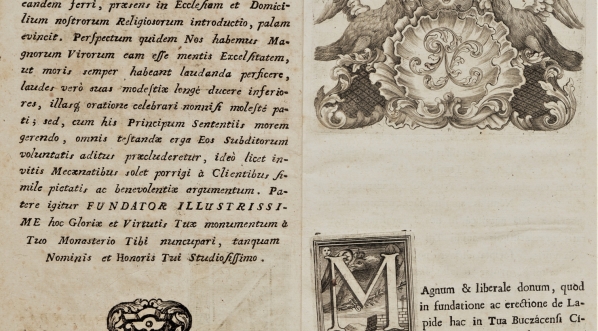 eandem ferri, præsens in Ecclesiam et Domici-
lium nostrorum Religiosorum introductio, palam
evincit. Perspectum quidem Nos habemus Ma-
gnorum Virorum eam esse mentis Excelsitatem,
ut moris semper habeant laudanda perficere,
laudes verò suas modestiæ longè ducere inferio-
res, illasq́; oratione celebrari nonnisi molestè pa-
ti; sed, cum his Principum Sententiis morem
gerendo, omnis testandæ erga Eos Subditorum
voluntatis aditus præcluderetur, ideò licet in-
vitis Mecænatibus solet porrigi à Clientibus si-
mile pietatis ac benevolentiæ argumentum. Pa-
tere igitur FUNDATOR ILLUSTRISSI-
ME hoc Gloriæ et Virtutis Tuæ monumentum à
Tuo Monasterio Tibi nuncupari, tanquam
Nominis et Honoris Tui Studiosissimo.
MAgnum & liberale donum, quòd
in fundatione ac erectione de La-
pide hac in Tua Buczácensi Ci-